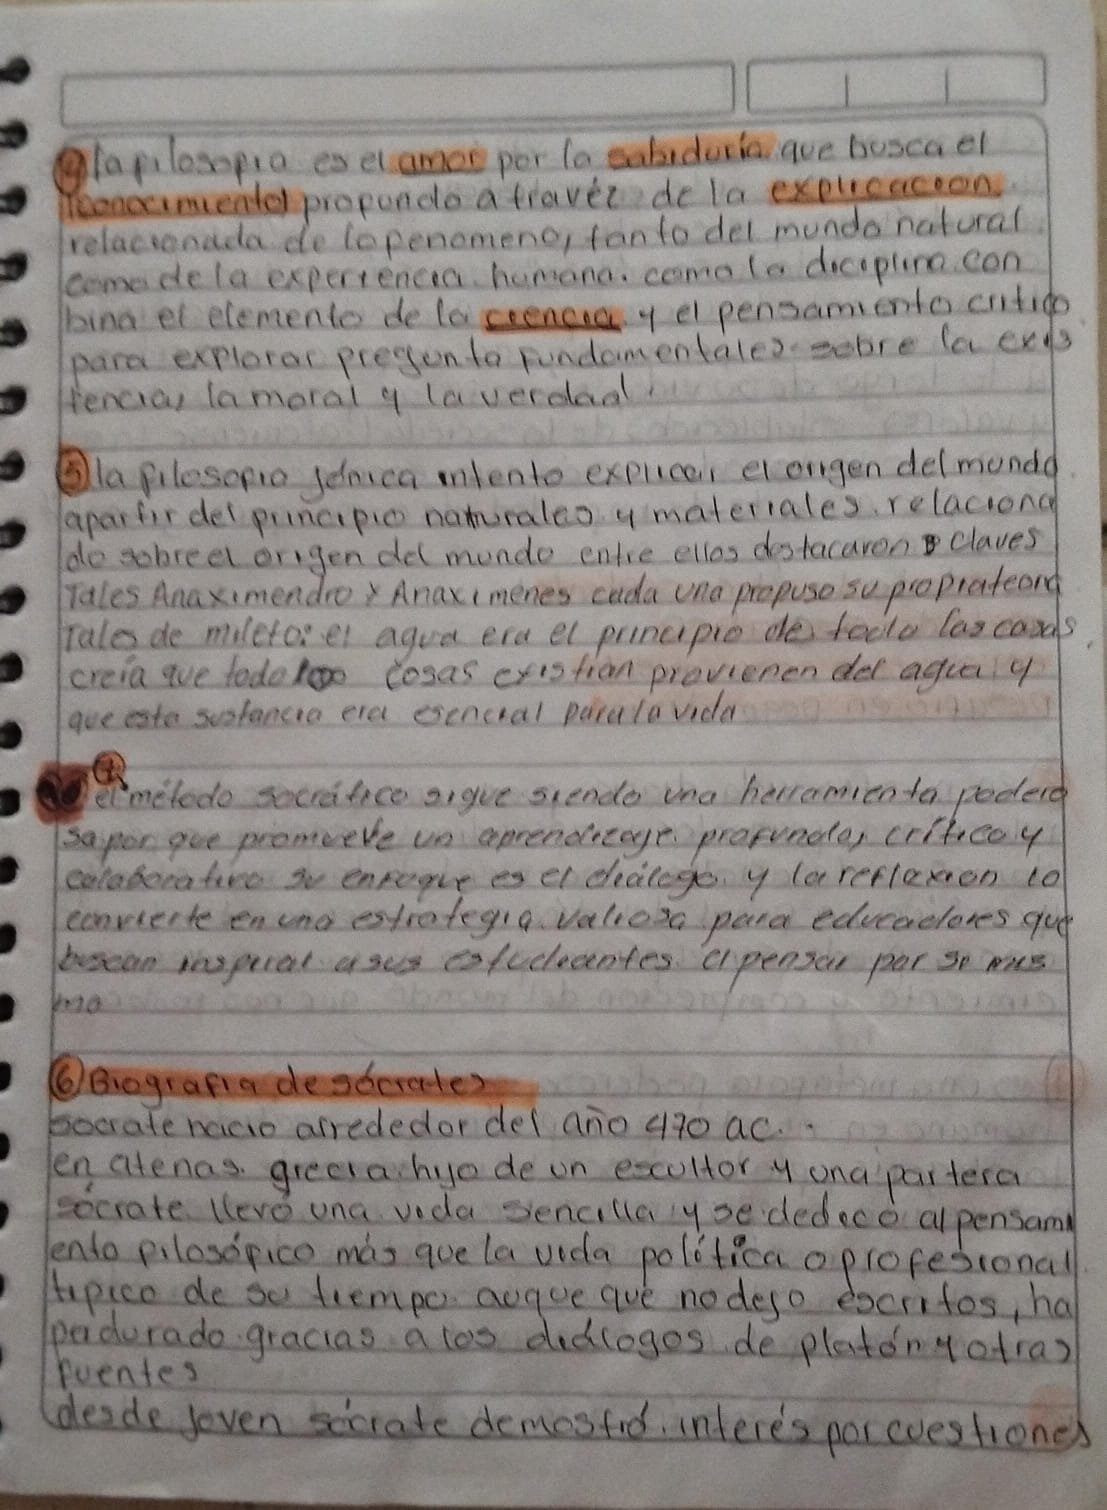 ④ la filosofia es el amor por la sabiduria que busca el
conocimiento profundo a travéz de la explicacion
relacionada de lo fenomeno, tanto del mundo natural
como de la experiencia humana. como la diciplina con
bina el elemento de la ciencia y el pensamiento critico
para explorar pregunta fundamentales sobre la exis
tencia, la moral y la verdad.
⑤ la filosofia jónica intento explicar el origen del mundo
apartir del principio naturales y materiales. relaciona
do sobre el origen del mundo entre ellos destacaron claves
Tales Anaximendro y Anaximenes cada una propuso su propia teoria
Tales de mileto: el agua era el principio de todo las cosas
creía que todo cosas existian provienen del agua y
que esta sustancia era esencial para la vida
④ el método socrático sigue siendo una herramienta podero
sa por que promueve un aprendizaje. profundo, crítico y
colaborativo su enfoque es el diálogo. y la reflexion lo
convierte en una estrategia. valiosa para educadores que
buscan inspirar a sus estudiantes. a pensar por si mis
mo
⑥ Biografia de sócrates
socrate nacio alrededor del año 470 ac..
en atenas. grecia. hijo de un escultor y una partera
sócrate. llevó una vida sencilla y se dedicó al pensami
ento filosófico más que la vida política o profesional
tipico de su tiempo. auque que no dejo escritos, ha
padurado gracias a los diálogos de platón y otras
fuentes
desde joven sócrate demostró. interés por cuestiones